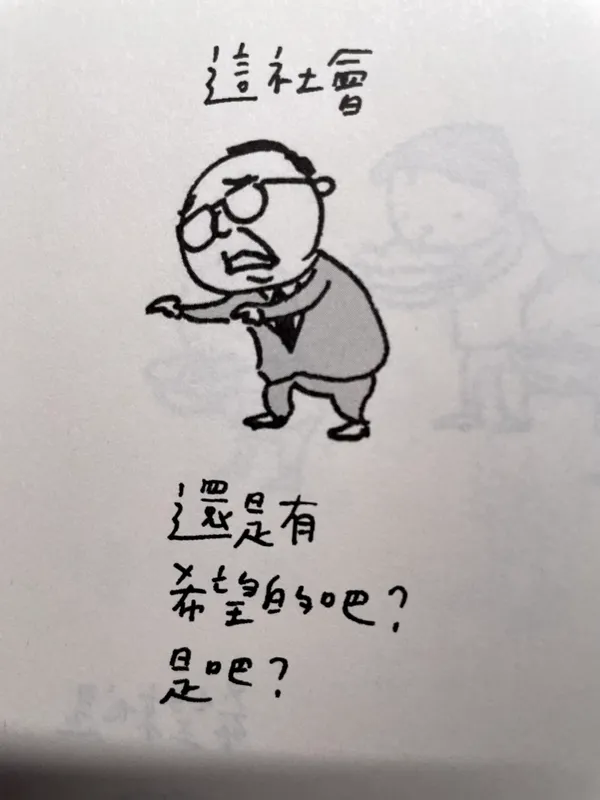 這社會
還是有
希望的吧?
是吧?